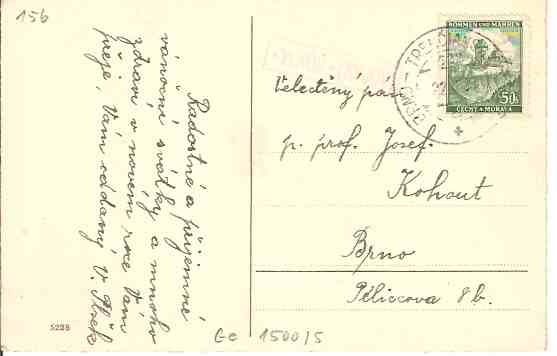 156
Radostné a příjemné
vánoční svátky a mnoho
zdraví v novém roce Vám
přeje, Vám oddaný V.
BÖHMEN UND MÄHREN
50
ČECHY A MORAVA
BRNO
Velectěný pan
p. prof. Josef.
Kohout
Brno
Pellicova 8b.
5228
Gc 1500/5